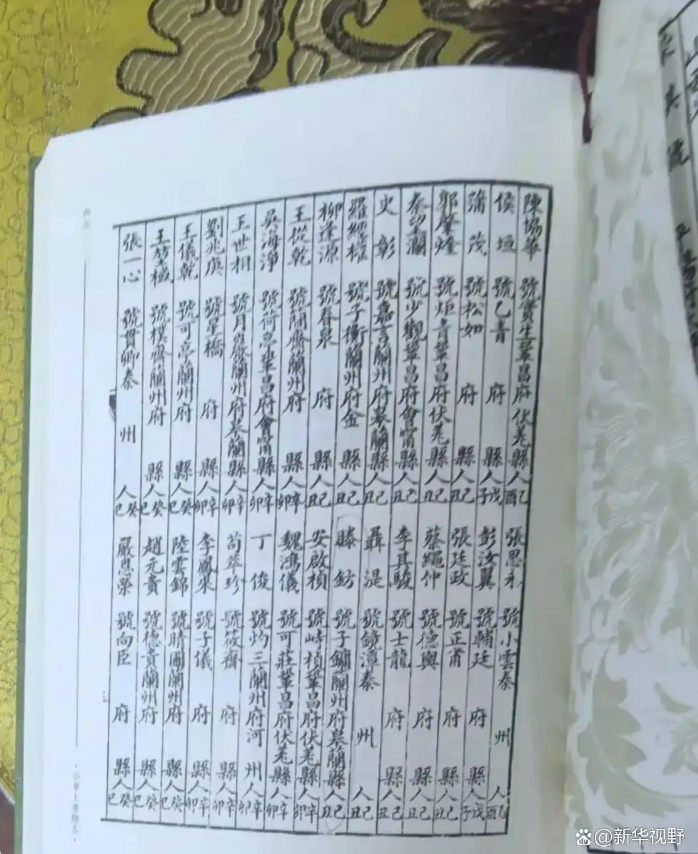 陳協華 號賓生鞏昌府伏羌縣人己酉 張思永 號小雲秦 州 人己酉
侯垣 號乙青 府 縣人戊子 彭汝翼 號輔廷 府 縣人戊子
蒲茂 號松如 府 縣人己丑 張廷政 號正甫 府 縣人己丑
郭肇煃 號炬青鞏昌府伏羌縣人己丑 蔡繩仲 號德輿 府 縣人己丑
秦望瀾 號少觀鞏昌府會甯縣人己丑 李其駿 號士龍 府 縣人己丑
史彰 號嘉言蘭州府皋蘭縣人己丑 聶湜 號鏡潭秦 州 人己丑
羅經權 號子衡蘭州府金 縣人己丑 滕鈁 號子鏞蘭州府皋蘭縣人己丑
柳逢源 號春泉 府 縣人己丑 安啟楨 號峙楨鞏昌府伏羌縣人辛卯
王從乾 號閏齋蘭州府 縣人辛卯 魏鴻儀 號可莊鞏昌府伏羌縣人辛卯
吳海淨 號荷亭鞏昌府會甯縣人辛卯 丁俊 號灼三蘭州府河 州人辛卯
王世相 號月巖蘭州府皋蘭縣人辛卯 苟萃珍 號筱齋 府 縣人辛卯
劉兆庚 號星橋 府 縣人辛卯 李鳳來 號子儀 府 縣人辛卯
王儀乾 號可亭蘭州府 縣人癸巳 陸雲錦 號晴圃蘭州府 縣人癸巳
號樸齋蘭州府 縣人癸巳 趙元貴 號德貴蘭州府 縣人癸巳
張一心 號貫卿秦 州 人癸巳 嚴思榮 號向臣 府 縣人癸巳
新华视野